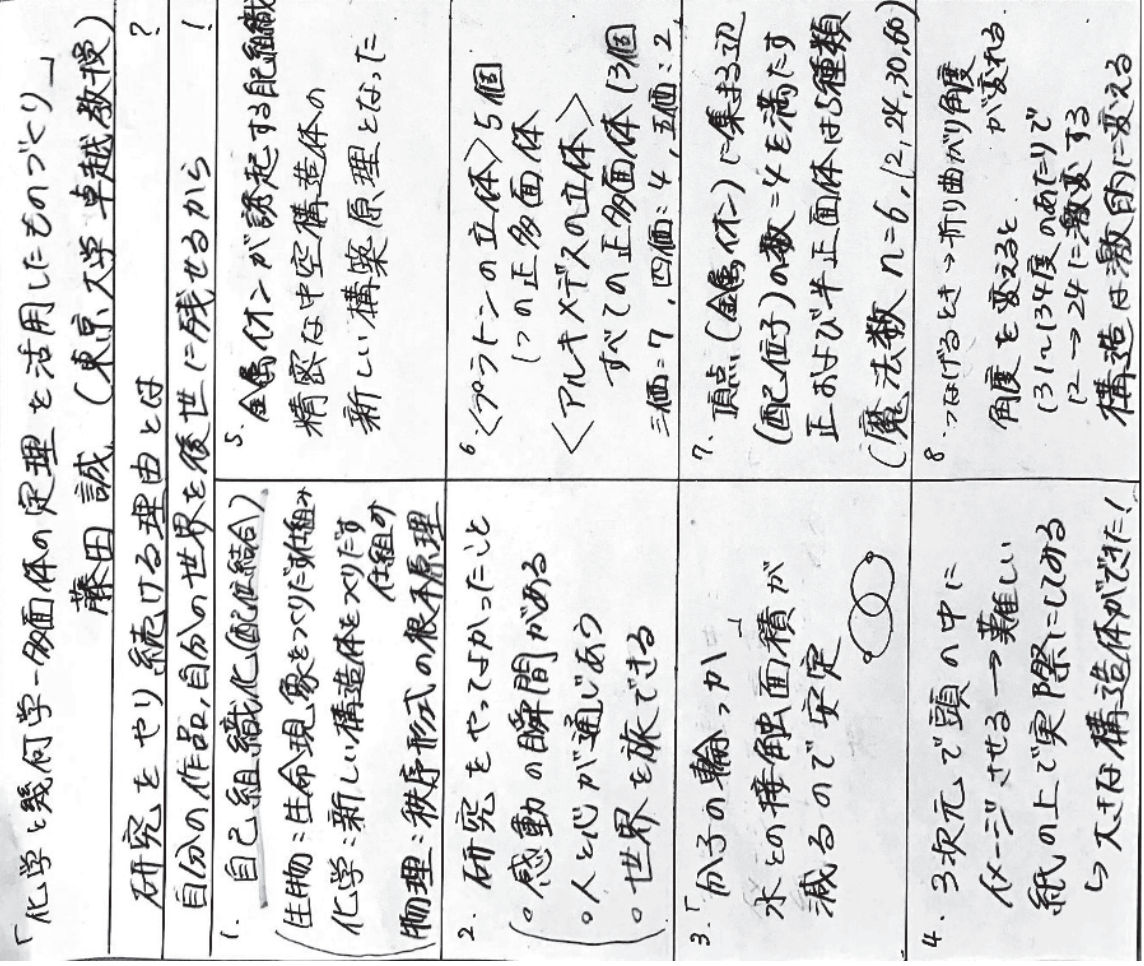 「化学と幾何学-多面体の定理を活用したものづくり」
藤田 誠 (東京大学 卓越教授)
研究をやり続ける理由とは ?
自分の作品,自分の世界を後世に残せるから !
1. 自己組織化(配位結合)
生物:生命現象をつくりだす仕組み
化学:新しい構造体をつくりだす
仕組み
物理:秩序形式の根本原理
2. 研究をやってよかったこと
。感動の瞬間がある
。人と心が通じあう
。世界を旅できる
3.「分子の輪っか」
水との接触面積が
減るので安定
4. 3次元で頭の中に
イメージさせる→難しい
紙の上で実際にしてみる
↳大きな構造体ができた!
5. 金属イオンが誘起する自己組織
精密な中空構造体の
新しい構築原理となった
6.〈プラトンの立体〉5個
1つの正多面体
〈アルキメデスの立体〉
すべての正多面体13個
三価=7,四価=4,五価=2
7. 頂点(金属イオン)に集まる辺
(配位子)の数=4を満たす
正および半正面体は5種類
(魔法数 n=6,12,24,30,60)
8.つなげるとき→折り曲がり角度
が変わる.
角度を変えると
131~134度のあたりで
12→24に激変する
構造は激的に変える